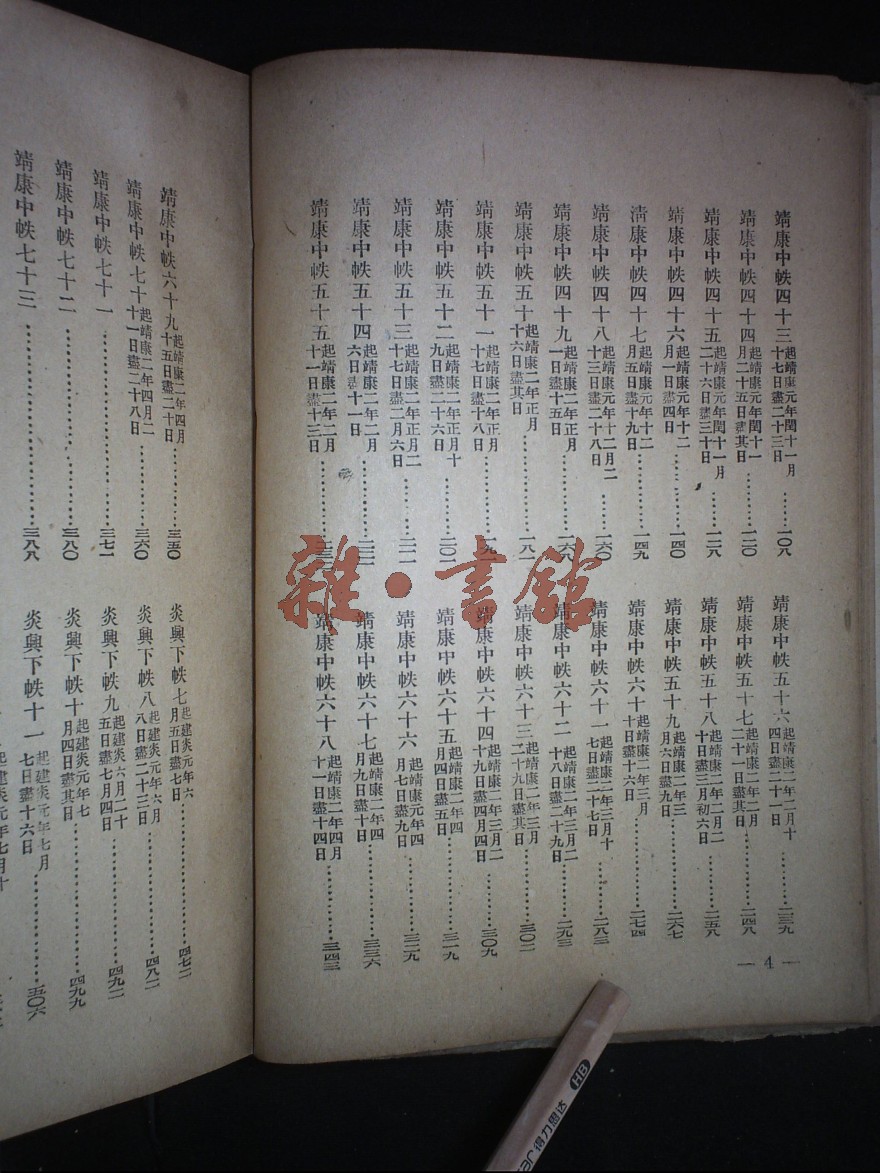 靖康中帙四十三 起靖康元年閏十一月十七日盡二十三日………一〇八
靖康中帙四十四 起靖康元年閏十一月二十五日盡其日………一二〇
靖康中帙四十五 起靖康元年閏十一月二十六日盡三十日………一二八
靖康中帙四十六 起靖康元年十二月一日盡四日………一四〇
清康中帙四十七 起靖康元年十二月五日盡十九日………一四九
靖康中帙四十八 起靖康元年十二月二十三日盡二十八日………一六〇
靖康中帙四十九 起靖康二年正月一日盡十五日………一六八
靖康中帙五十 起靖康二年正月十六日盡其日………一八一
靖康中帙五十一 起靖康二年正月十七日盡十八日………一九一
靖康中帙五十二 起靖康二年正月十九日盡二十六日………二〇一
靖康中帙五十三 起靖康二年正月二十七日盡二月六日………二一一
靖康中帙五十四 起靖康二年二月六日盡十一日………二二一
靖康中帙五十五 起靖康二年二月十一日盡十三日………
靖康中帙五十六 起靖康二年二月十四日盡二十一日………二三九
靖康中帙五十七 起靖康二年二月二十一日盡其日………二四八
靖康中帙五十八 起靖康二年二月二十日盡三月初六日………二五八
靖康中帙五十九 起靖康二年三月六日盡九日………二六七
靖康中帙六十 起靖康二年三月十日盡十六日………二七四
靖康中帙六十一 起靖康二年三月十七日盡二十七日………二八三
靖康中帙六十二 起靖康二年三月二十八日盡二十九日………二九三
靖康中帙六十三 起靖康二年三月二十九日盡其日………三〇二
靖康中帙六十四 起靖康二年三月二十九日盡四月四日………三〇九
靖康中帙六十五 起靖康二年四月四日盡五日………三一九
靖康中帙六十六 起靖康元年四月七日盡九日………三二九
靖康中帙六十七 起靖康二年四月九日盡十日………三三六
靖康中帙六十八 起靖康二年四月十一日盡十四日………三四三
— 4 —
靖康中帙六十九 起靖康二年四月十五日盡二十日………三五〇
靖康中帙七十 起靖康二年四月二十一日盡二十八日………三六〇
靖康中帙七十一………三七一
靖康中帙七十二………三八〇
靖康中帙七十三………三八八
炎興下帙七 起建炎元年六月五日盡七日………四七二
炎興下帙八 起建炎元年六月八日盡二十三日………四八二
炎興下帙九 起建炎六月二十五日盡七月四日………四九二
炎興下帙十 起建炎元年七月四日盡其日………四九九
炎興下帙十一 起建炎元年七月七日盡十六日………五〇六
起建炎元年七月十
雜·書館
得力思达 HB